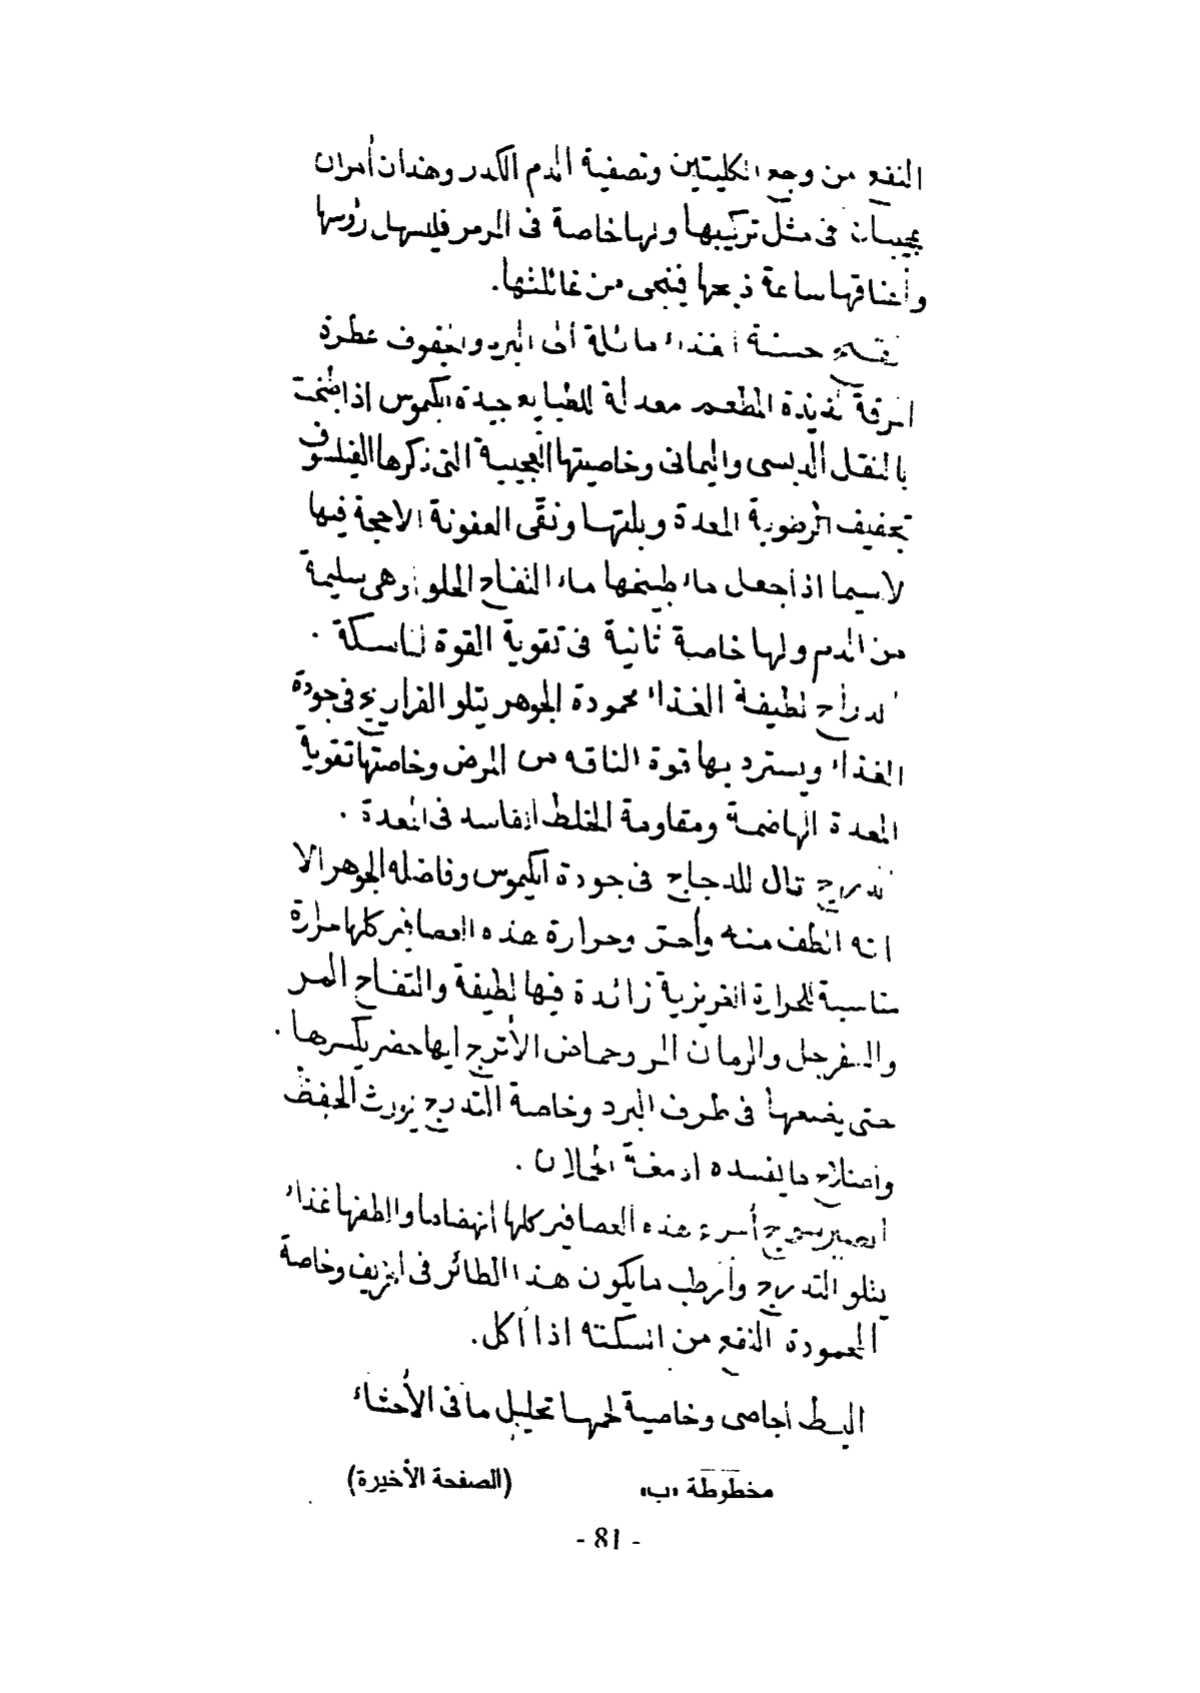 النفع من وجع الكليتين وتصفية الدم الكدر وهذان أمران
عجيبان فى مثل تركيبها ولها خاصة فى الرمر فليسهل رؤسها
وأعناقها ساعة ذبحها فينجى من غائلتها.
حسنة الغذاء مائلة الى البرد والجفوف عطرة
المرقة لذيذة المطعم معدلة للطبايع جيدة الكيموس اذا طبخت
بالنقل الدبسى واليمانى وخاصيتها العجيبة التى ذكرها الفيلسوف
تجفيف الرطوبة المعدة وبلتها ونقى العفونة فيها
لاسيما اذا جعل ماء طبخها ماء التفاح الحلو وهى سليمة
من الدم ولها خاصة ثانية فى تقوية القوة الماسكة .
الدراج لطيفة الغذاء محمودة الجوهر يتلو الفراريج فى جودة
الغذاء ويسترد بها قوة الناقه من المرض وخاصتها تقوية
المعدة الهاضمة ومقاومة الخلط الفاسد فى المعدة .
التدرج تال للدجاج فى جودة الكيموس وفاضله الجوهر الا
انه الطف منه وأحق وحرارة هذه العصافير كلها حرارة
مناسبة للحرارة الغريزية زائدة فيها لطيفة والتفاح المر
والسفرجل والرمان المر وحماض الأترج ايها حضر يكسرها .
حتى يضعها فى طرف البرد وخاصة التدرج يورث الحفظ
واصلاح ما يفسده ادمغة الحملان .
أسرع هذه العصافير كلها انهضاما والطفها غذاء
يتلو التدرج وأرطب ما يكون هذا الطائر فى الخريف وخاصة
المحمودة النفع من السكتة اذا أكل .
البط أجاصى وخاصية لحمها تحليل ما فى الأحشاء
مخطوطة «ب» (الصفحة الأخيرة)
- 81 -